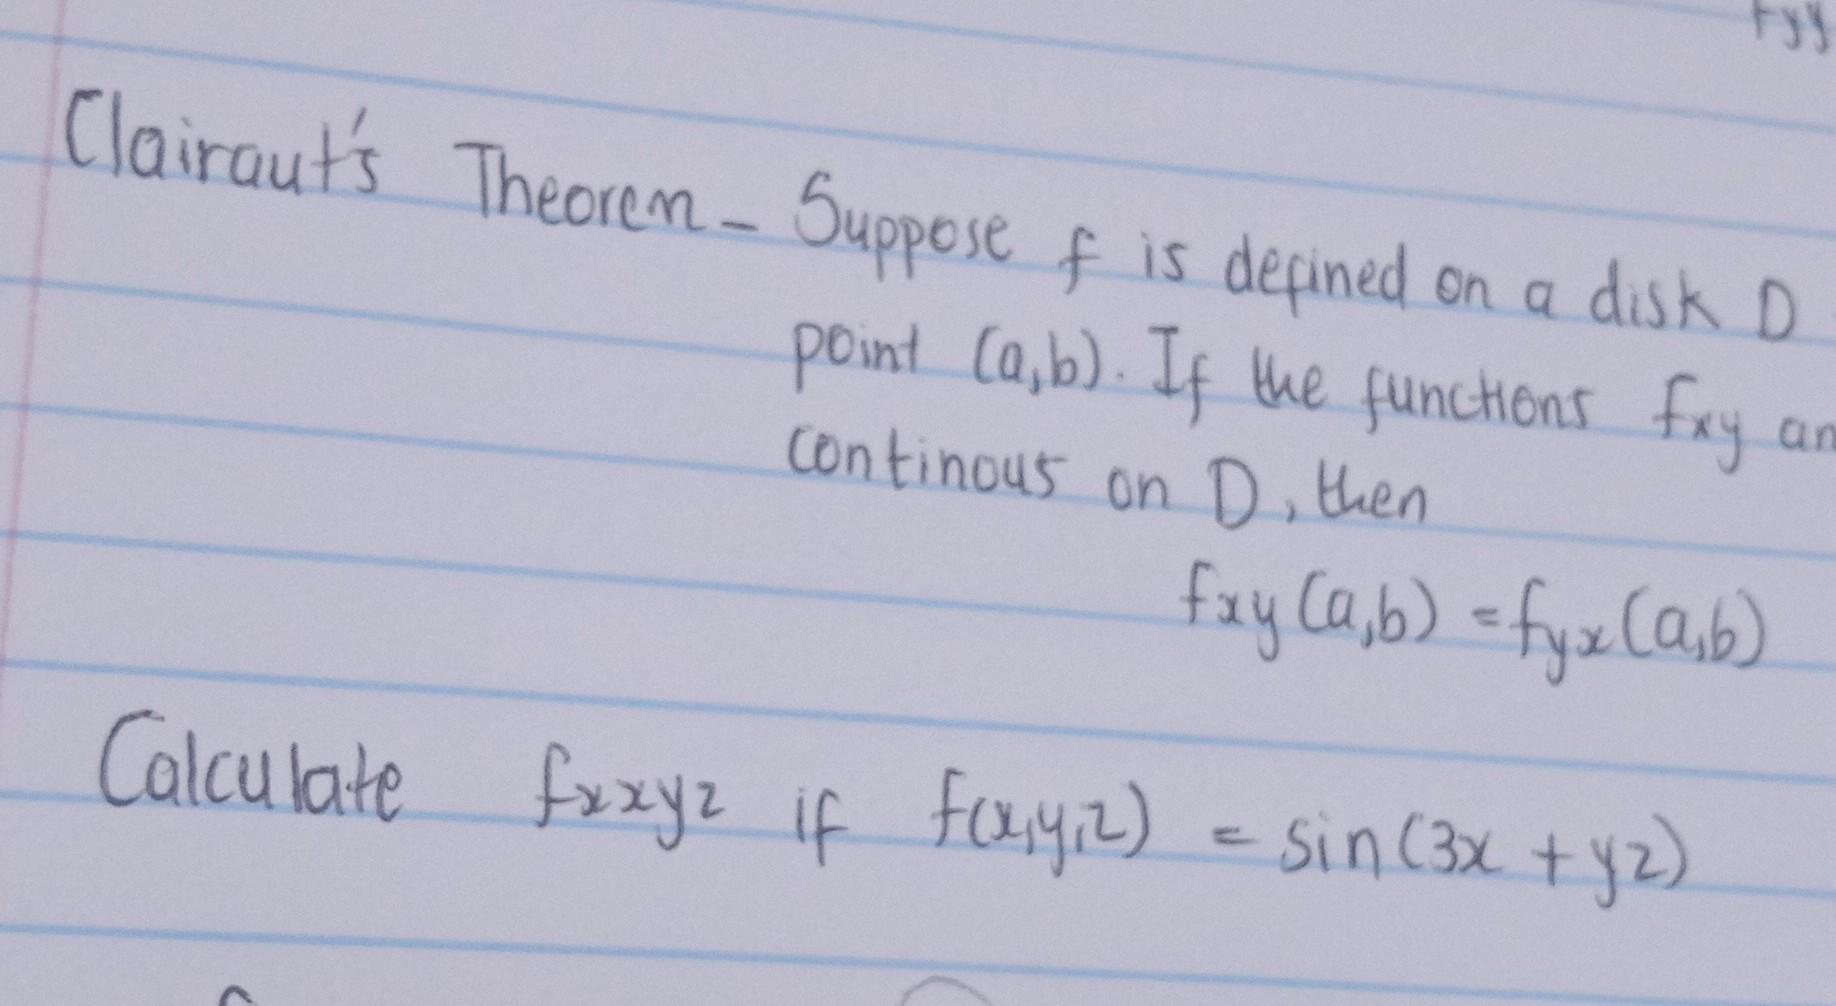 Fyy
Clairaut's Theorem - Suppose f is defined on a disk D
point (a,b). If the functions fxy an
continous on D, then
fxy (a,b) = fyx (a,b)
Calculate fxxyz if f(x,y,z) = sin(3x + yz)